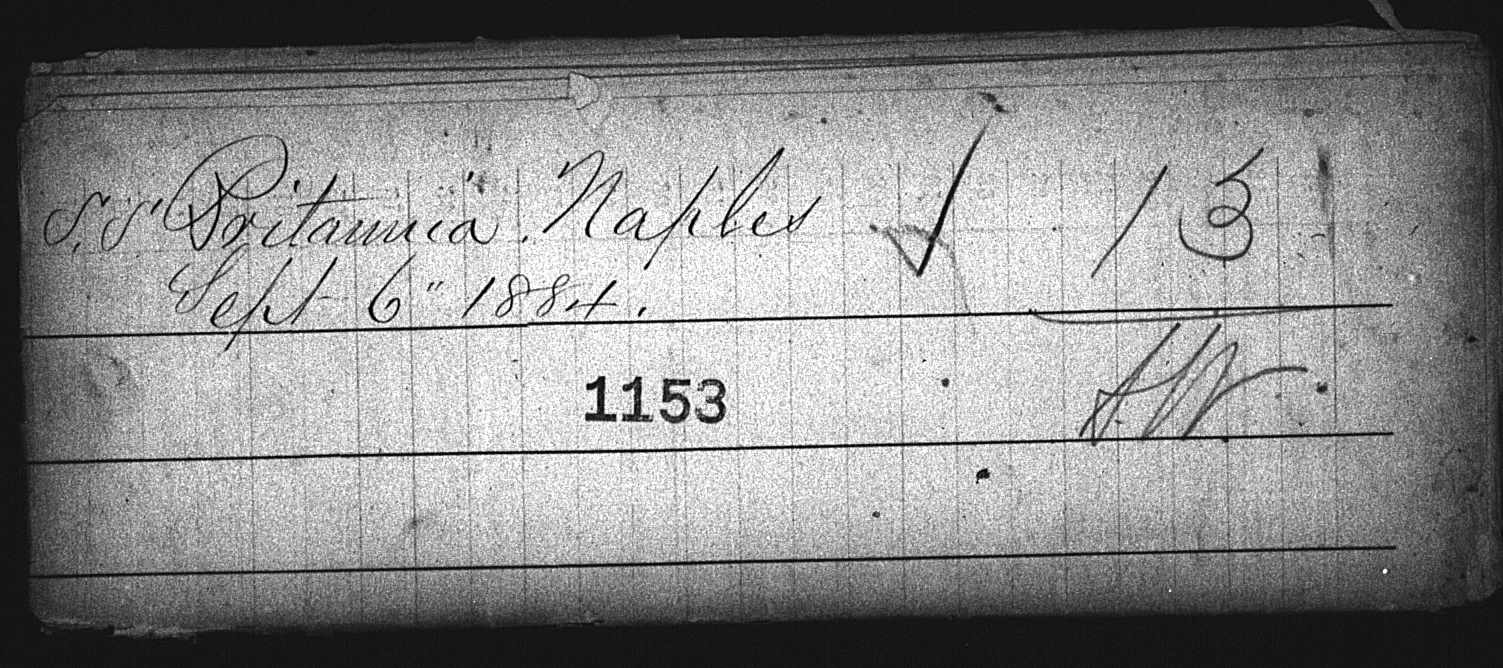 S.S. Britannia. Naples √ 13
Sept 6" 1884.
1153